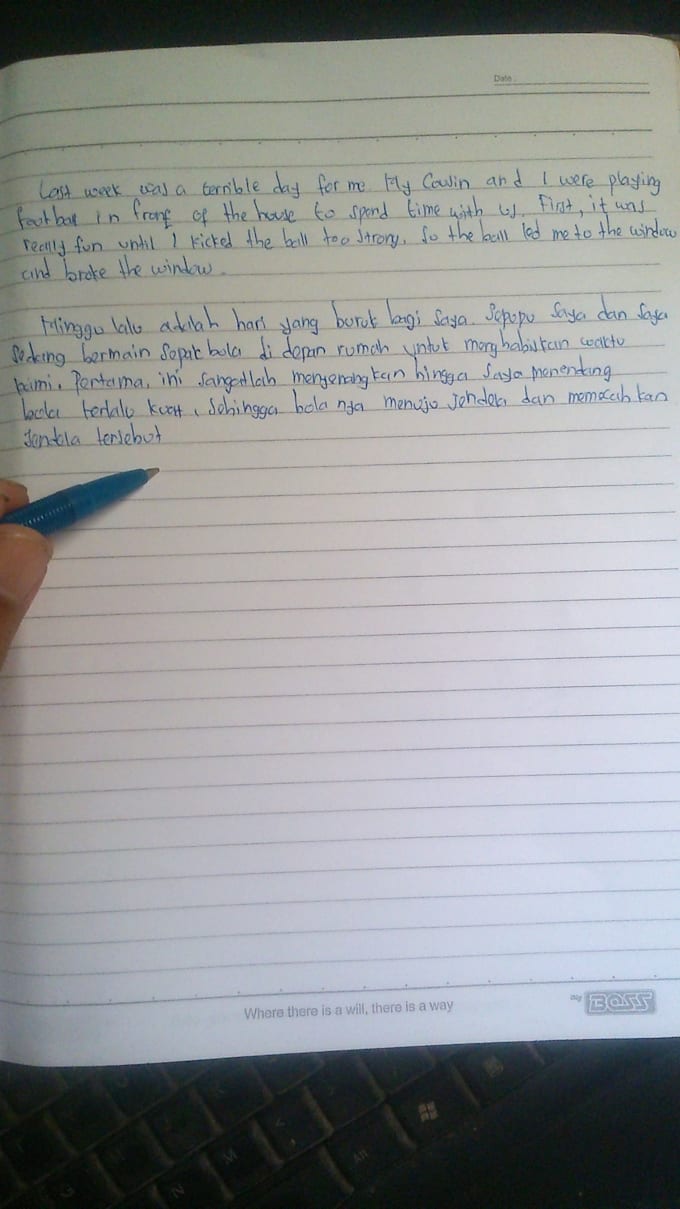 Date :
Last week was a terrible day for me. My Cousin and I were playing
football in front of the house to spend time with us. First, it was
really fun until I kicked the ball too strong. So the ball led me to the window
and broke the window.
Minggu lalu adalah hari yang buruk bagi saya. Sepupu saya dan saya
sedang bermain sepak bola di depan rumah untuk menghabiskan waktu
kami. Pertama, ini sangatlah menyenangkan hingga saya menendang
bola terlalu kuat, sehingga bola nya menuju jendela dan memecahkan
jendela tersebut
Where there is a will, there is a way
my BOSS